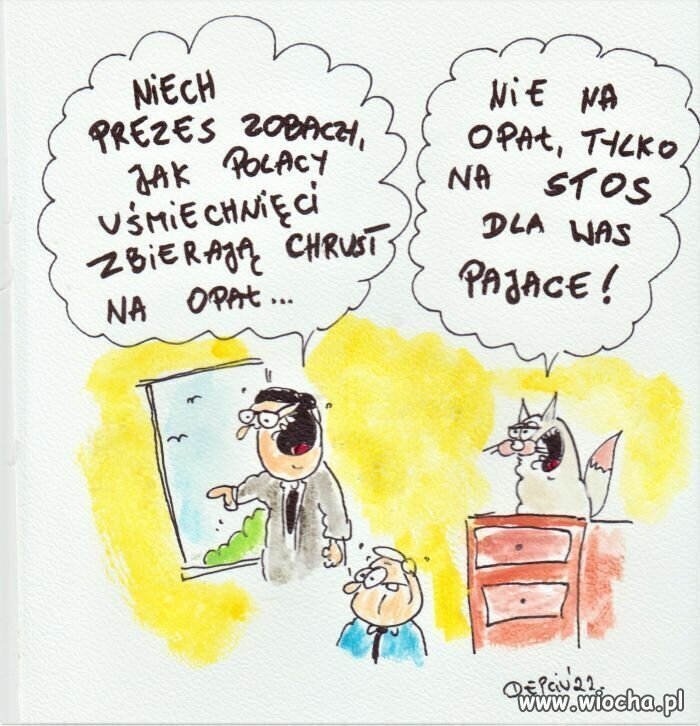 NIECH
PREZES ZOBACZY,
JAK POLACY
UŚMIECHNIĘCI
ZBIERAJĄ CHRUST
NA OPAŁ...
NIE NA
OPAŁ, TYLKO
NA STOS
DLA WAS
PAJACE!
DEPCIU'22.
www.wiocha.pl